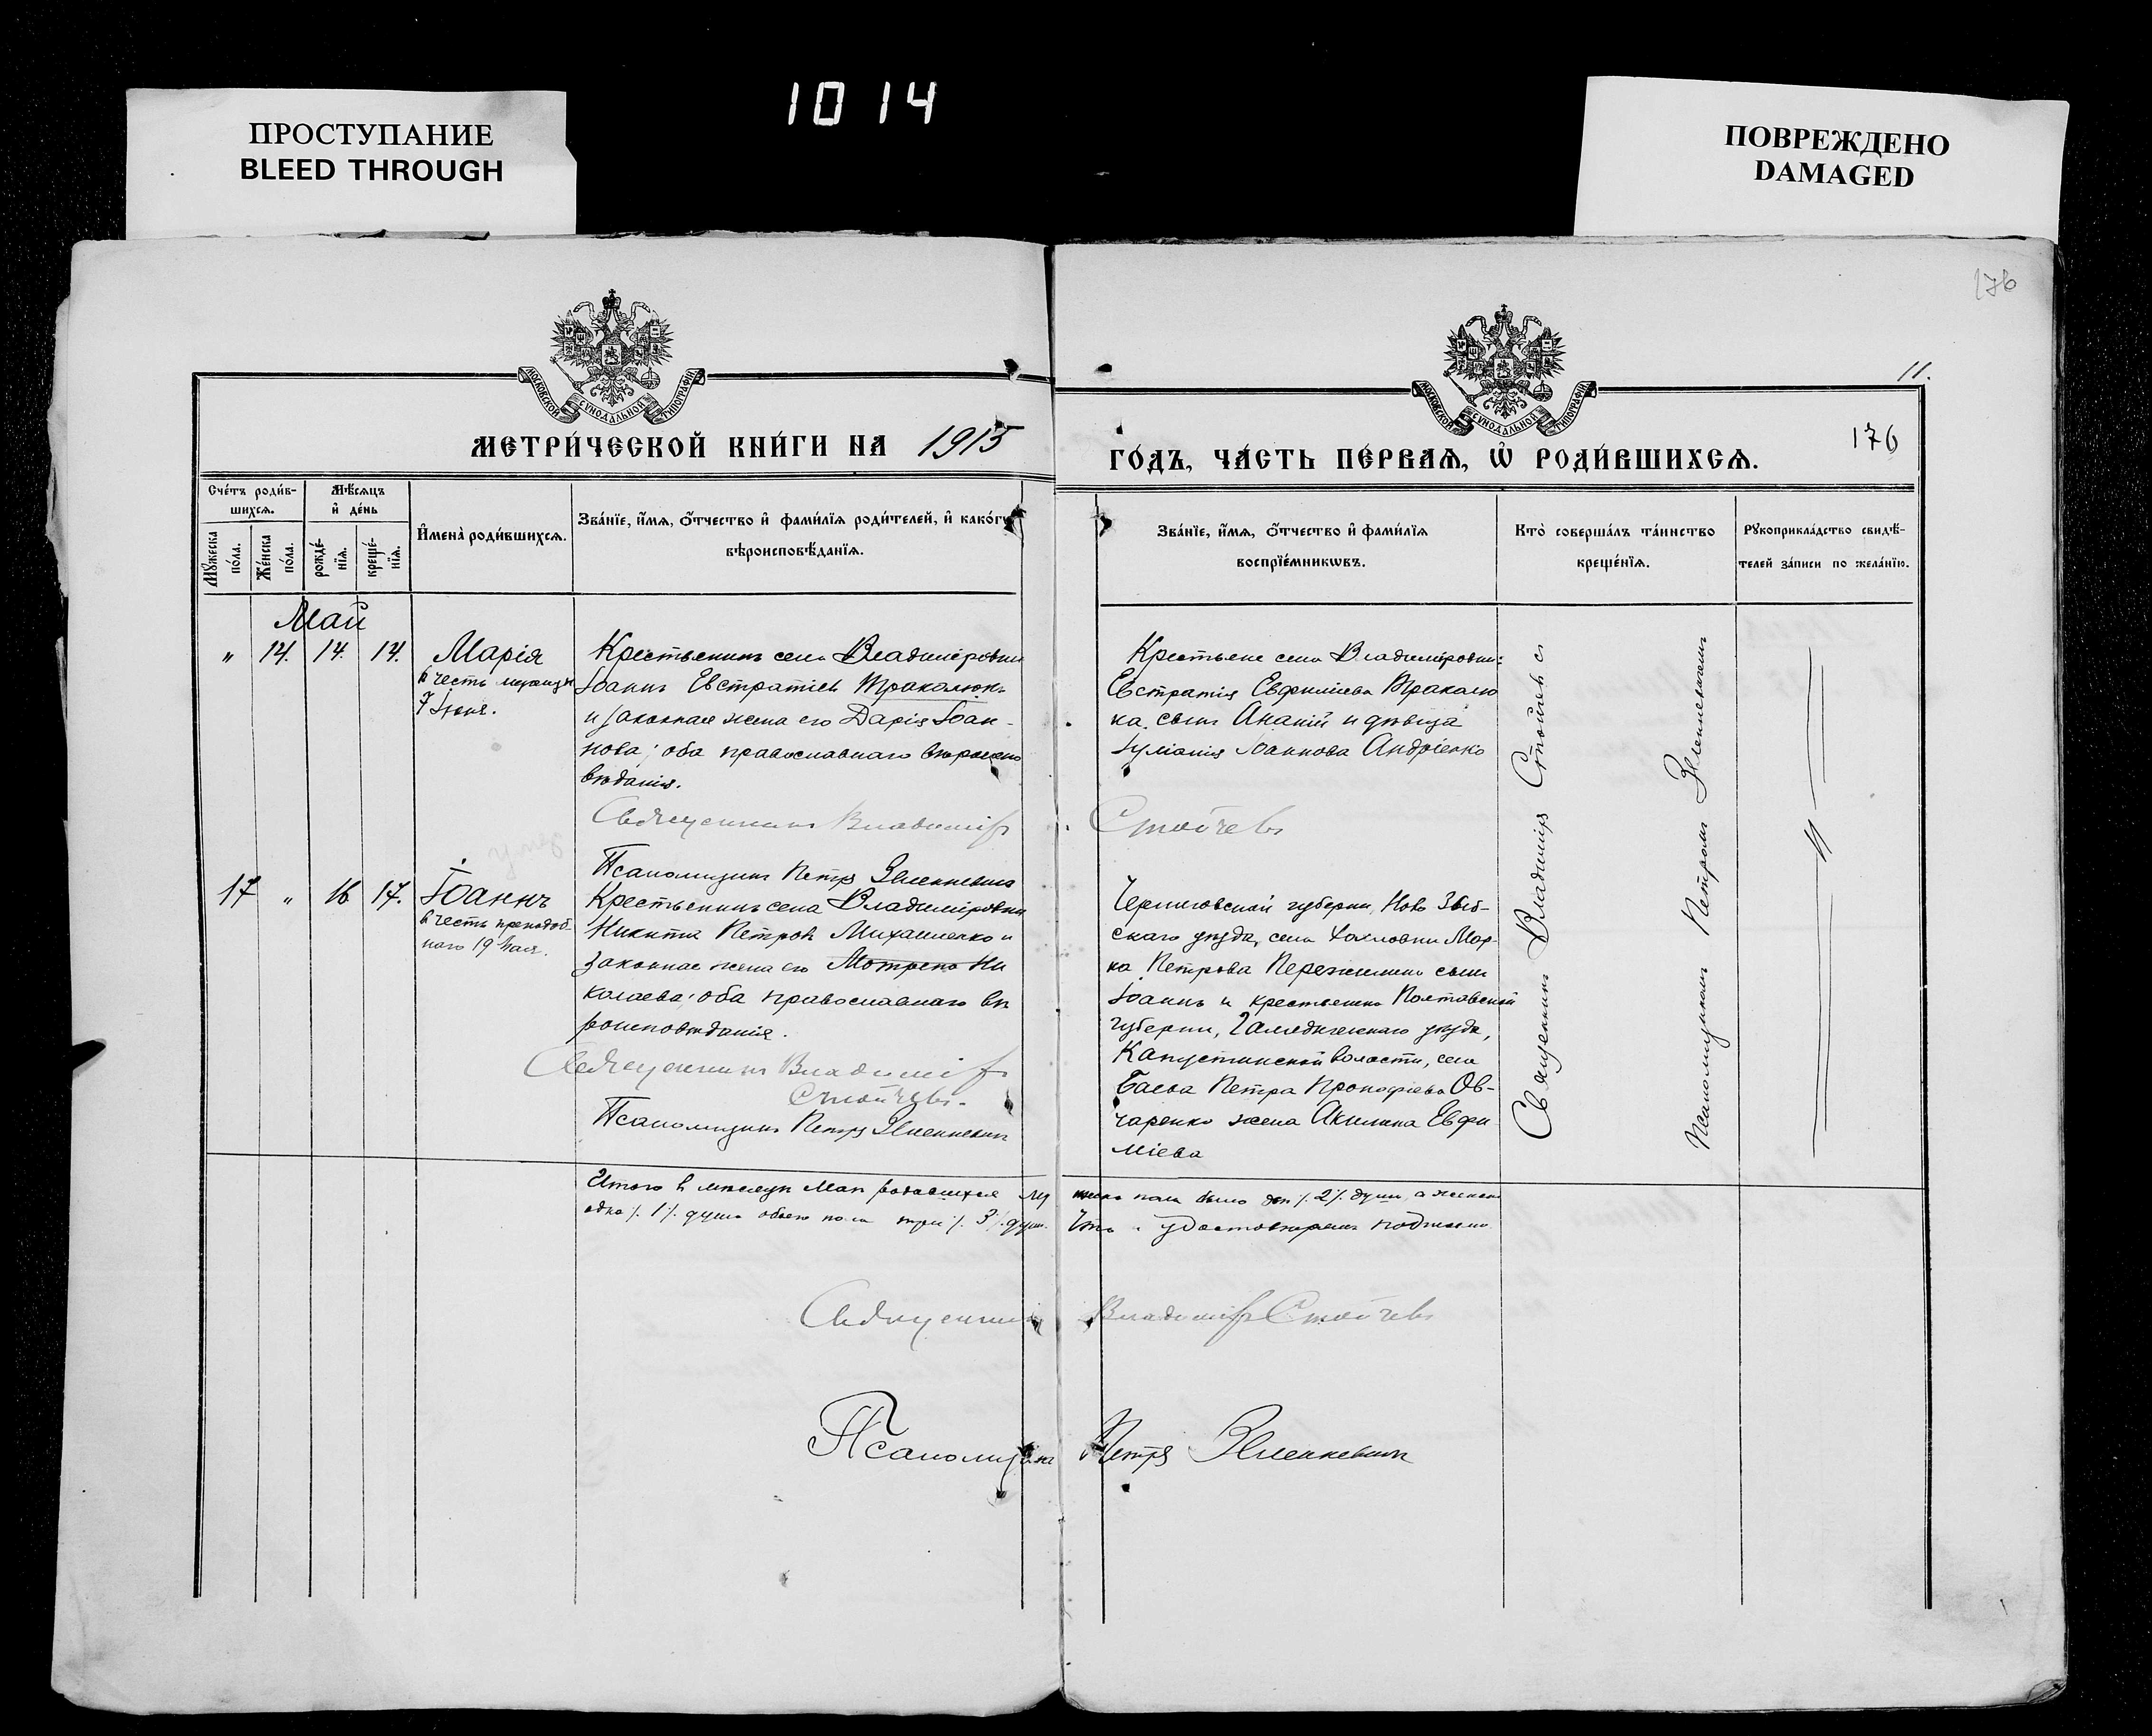 1014
ПРОСТУПАНИЕ
BLEED THROUGH
ПОВРЕЖДЕНО
DAMAGED
176
11.
МОСКОВСКОЙ СУНОДАЛЬНОЙ ТИПОГРАФІИ
МОСКОВСКОЙ СУНОДАЛЬНОЙ ТИПОГРАФІИ
МЕТРИ́ЧЕСКОЙ КНИ́ГИ НА 1915
ГО́ДЪ, ЧА́СТЬ ПЕ́РВАѦ, Ѡ҆ РОДИ́ВШИХСѦ.
176
Сче́тъ роди́в-
шихсѧ.
Мѣ́сѧцъ
и҆ де́нь
Мꙋ́жеска
по́ла.
Же́нска
по́ла.
рожде́-
нїѧ.
креще́-
нїѧ.
И҆мена̀ роди́вшихсѧ.
Зва́нїе, и҆́мѧ, ѻ҆́тчество и҆ фами́лїѧ роди́телей, и҆ како́гѡ
вѣроисповѣ́данїѧ.
Зва́нїе, и҆́мѧ, ѻ҆́тчество и҆ фами́лїѧ
воспрїе́мникѡвъ.
Кто̀ соверша́лъ та́инство
креще́нїѧ.
Рꙋкоприкла́дство свидѣ́-
телей за́писи по жела́нїю.
Май
" 14. 14. 14. Марія
въ честь мученицы
7 Іюня.
Крестьянинъ села Владиміровки
Іоаннъ Евстратіевъ Траколюкъ
и законная жена его Дарія Іоан-
нова; оба православнаго вѣроиспо
вѣданія.
Священникъ Владиміръ
Стойчевъ
Псаломщикъ Петръ
Крестьяне села Владиміровки:
Евстратія Евфиміева Траколю
ка сынъ Ананій и дѣвица
Іуліанія Іоаннова Андріенко
Священникъ Владиміръ Стойчевъ съ
Псаломщикомъ Петромъ
17 " 16 17. Іоаннъ
въ честь преподоб-
наго 19 Мая.
Крестьянинъ села Владиміровки
Никита Петровъ Михайленко и
законная жена его Мотрена Ни
колаева; оба православнаго вѣ
роисповѣданія.
Священникъ Владиміръ
Стойчевъ.
Псаломщикъ Петръ
Черниговской губерніи, Ново Зыб-
скаго уѣзда, села Мар-
ка Петрова сынъ
Іоаннъ и крестьянина Полтавской
губерніи, уѣзда,
Капустинской волости, села
Баева Петра Прокофіева Ов-
чаренко жена Акилина Евфи
міева
Итого въ мѣсяцѣ Маѣ родившихся му
жеска пола было два ⁒ 2 ⁒ души, а женска
одна ⁒ 1 ⁒ душа обоего пола три ⁒ 3 ⁒ души.
Что и удостовѣряемъ подписью
Священникъ Владиміръ Стойчевъ
Псаломщикъ Петръ